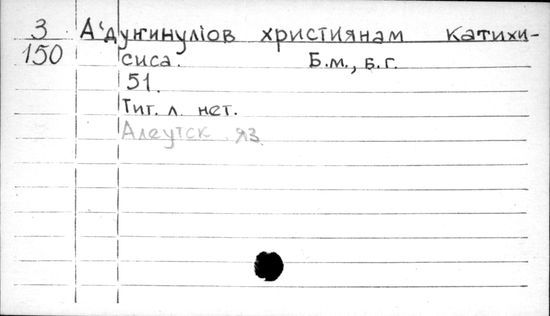 3 А'дуҥинулı̇ов християнам катихи-
150 сиса. Б.м., б.г.
51.
Тит. л. нет.
Алеутск. яз.